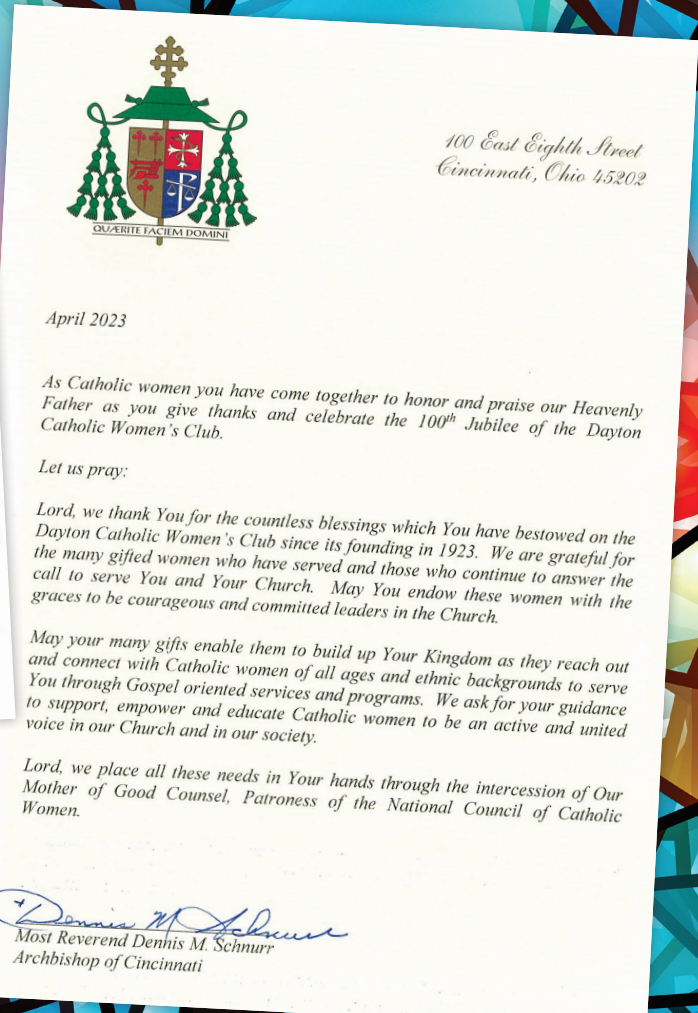 QUÆRITE FACIEM DOMINI
100 East Eighth Street
Cincinnati, Ohio 45202
April 2023
As Catholic women you have come together to honor and praise our Heavenly
Father as you give thanks and celebrate the 100th Jubilee of the Dayton
Catholic Women's Club.
Let us pray:
Lord, we thank You for the countless blessings which You have bestowed on the
Dayton Catholic Women's Club since its founding in 1923. We are grateful for
the many gifted women who have served and those who continue to answer the
call to serve You and Your Church. May You endow these women with the
graces to be courageous and committed leaders in the Church.
May your many gifts enable them to build up Your Kingdom as they reach out
and connect with Catholic women of all ages and ethnic backgrounds to serve
You through Gospel oriented services and programs. We ask for your guidance
to support, empower and educate Catholic women to be an active and united
voice in our Church and in our society.
Lord, we place all these needs in Your hands through the intercession of Our
Mother of Good Counsel, Patroness of the National Council of Catholic
Women.
+Dennis M Schnurr
Most Reverend Dennis M. Schnurr
Archbishop of Cincinnati